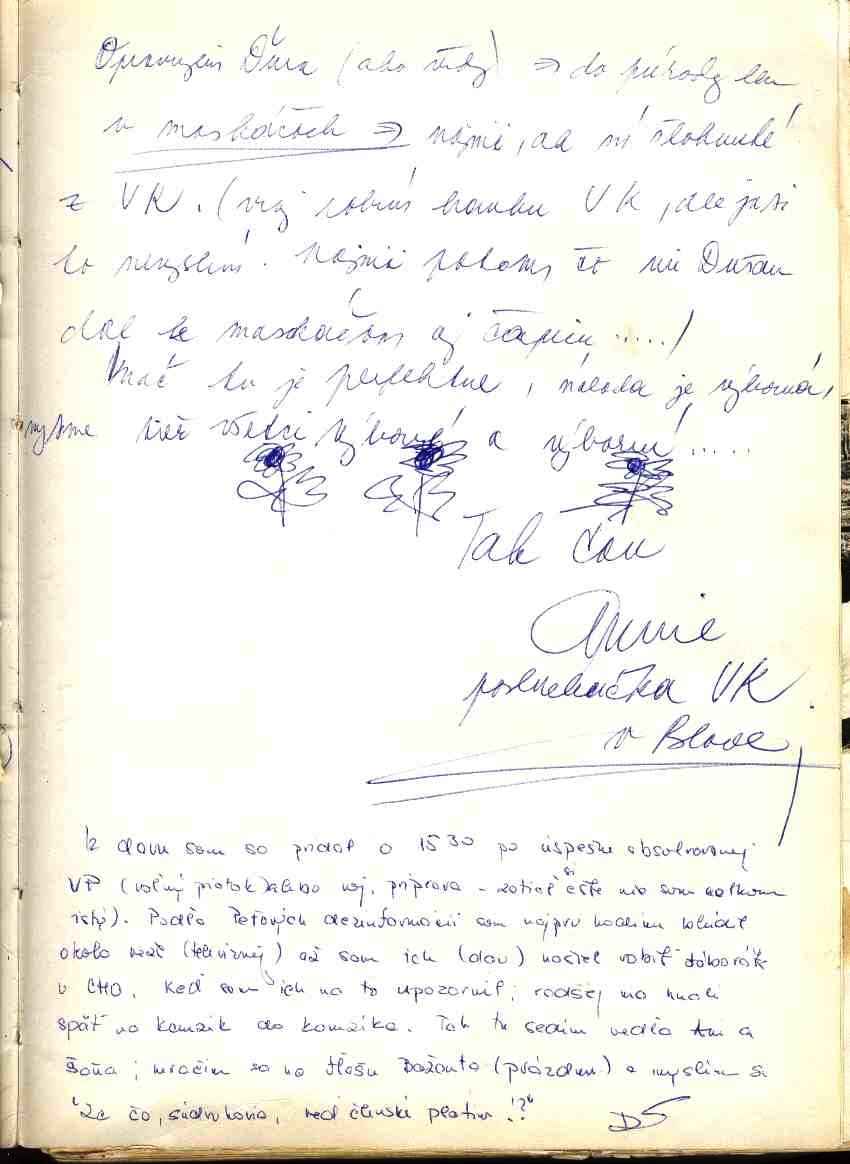 Opravujem Ďura (ako vždy) => do prírody len
v maskáčoch => najmä, ak sú
z VK. (vraj robíš hanbu VK, ale ja si
to nemyslím. Najmä potom, čo mi Dušan
dal k maskáčom aj čapicu .....)
Inač tu je perfektne, nálada je výborná,
my sme tiež všetci výborní a výborní .....
Tak čau
Annie
poslucháčka VK
v Blave
K davu som sa pridal o 15 30 po úspešne absolvovanej
VP (voľný piatok alebo voj. príprava - zatiaľ si ešte nie som celkom
istý). Podľa Peťových dezinformácií som najprv hodinu blúdil
okolo veže (televíznej) až som ich (dav) našiel robiť táborák
v CHO. Keď som ich na to upozornil, radšej ma hnali
späť na kamzík do kamzíka. Tak tu sedím vedľa Ani a
Soňa, mračím sa na fľašu Bažanta (prázdnu) a myslím si
"Za čo, súdruhovia, veď členské platím!?"
DS